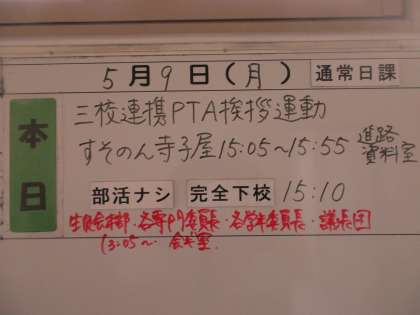 5月9日(月) 通常日課
本日
三校連携PTA挨拶運動
すそのん寺子屋15:05〜15:55 進路資料室
部活ナシ 完全下校 15:10
生徒会本部・各専門委員長・各学年委員長・議長団
13:05〜 会議室